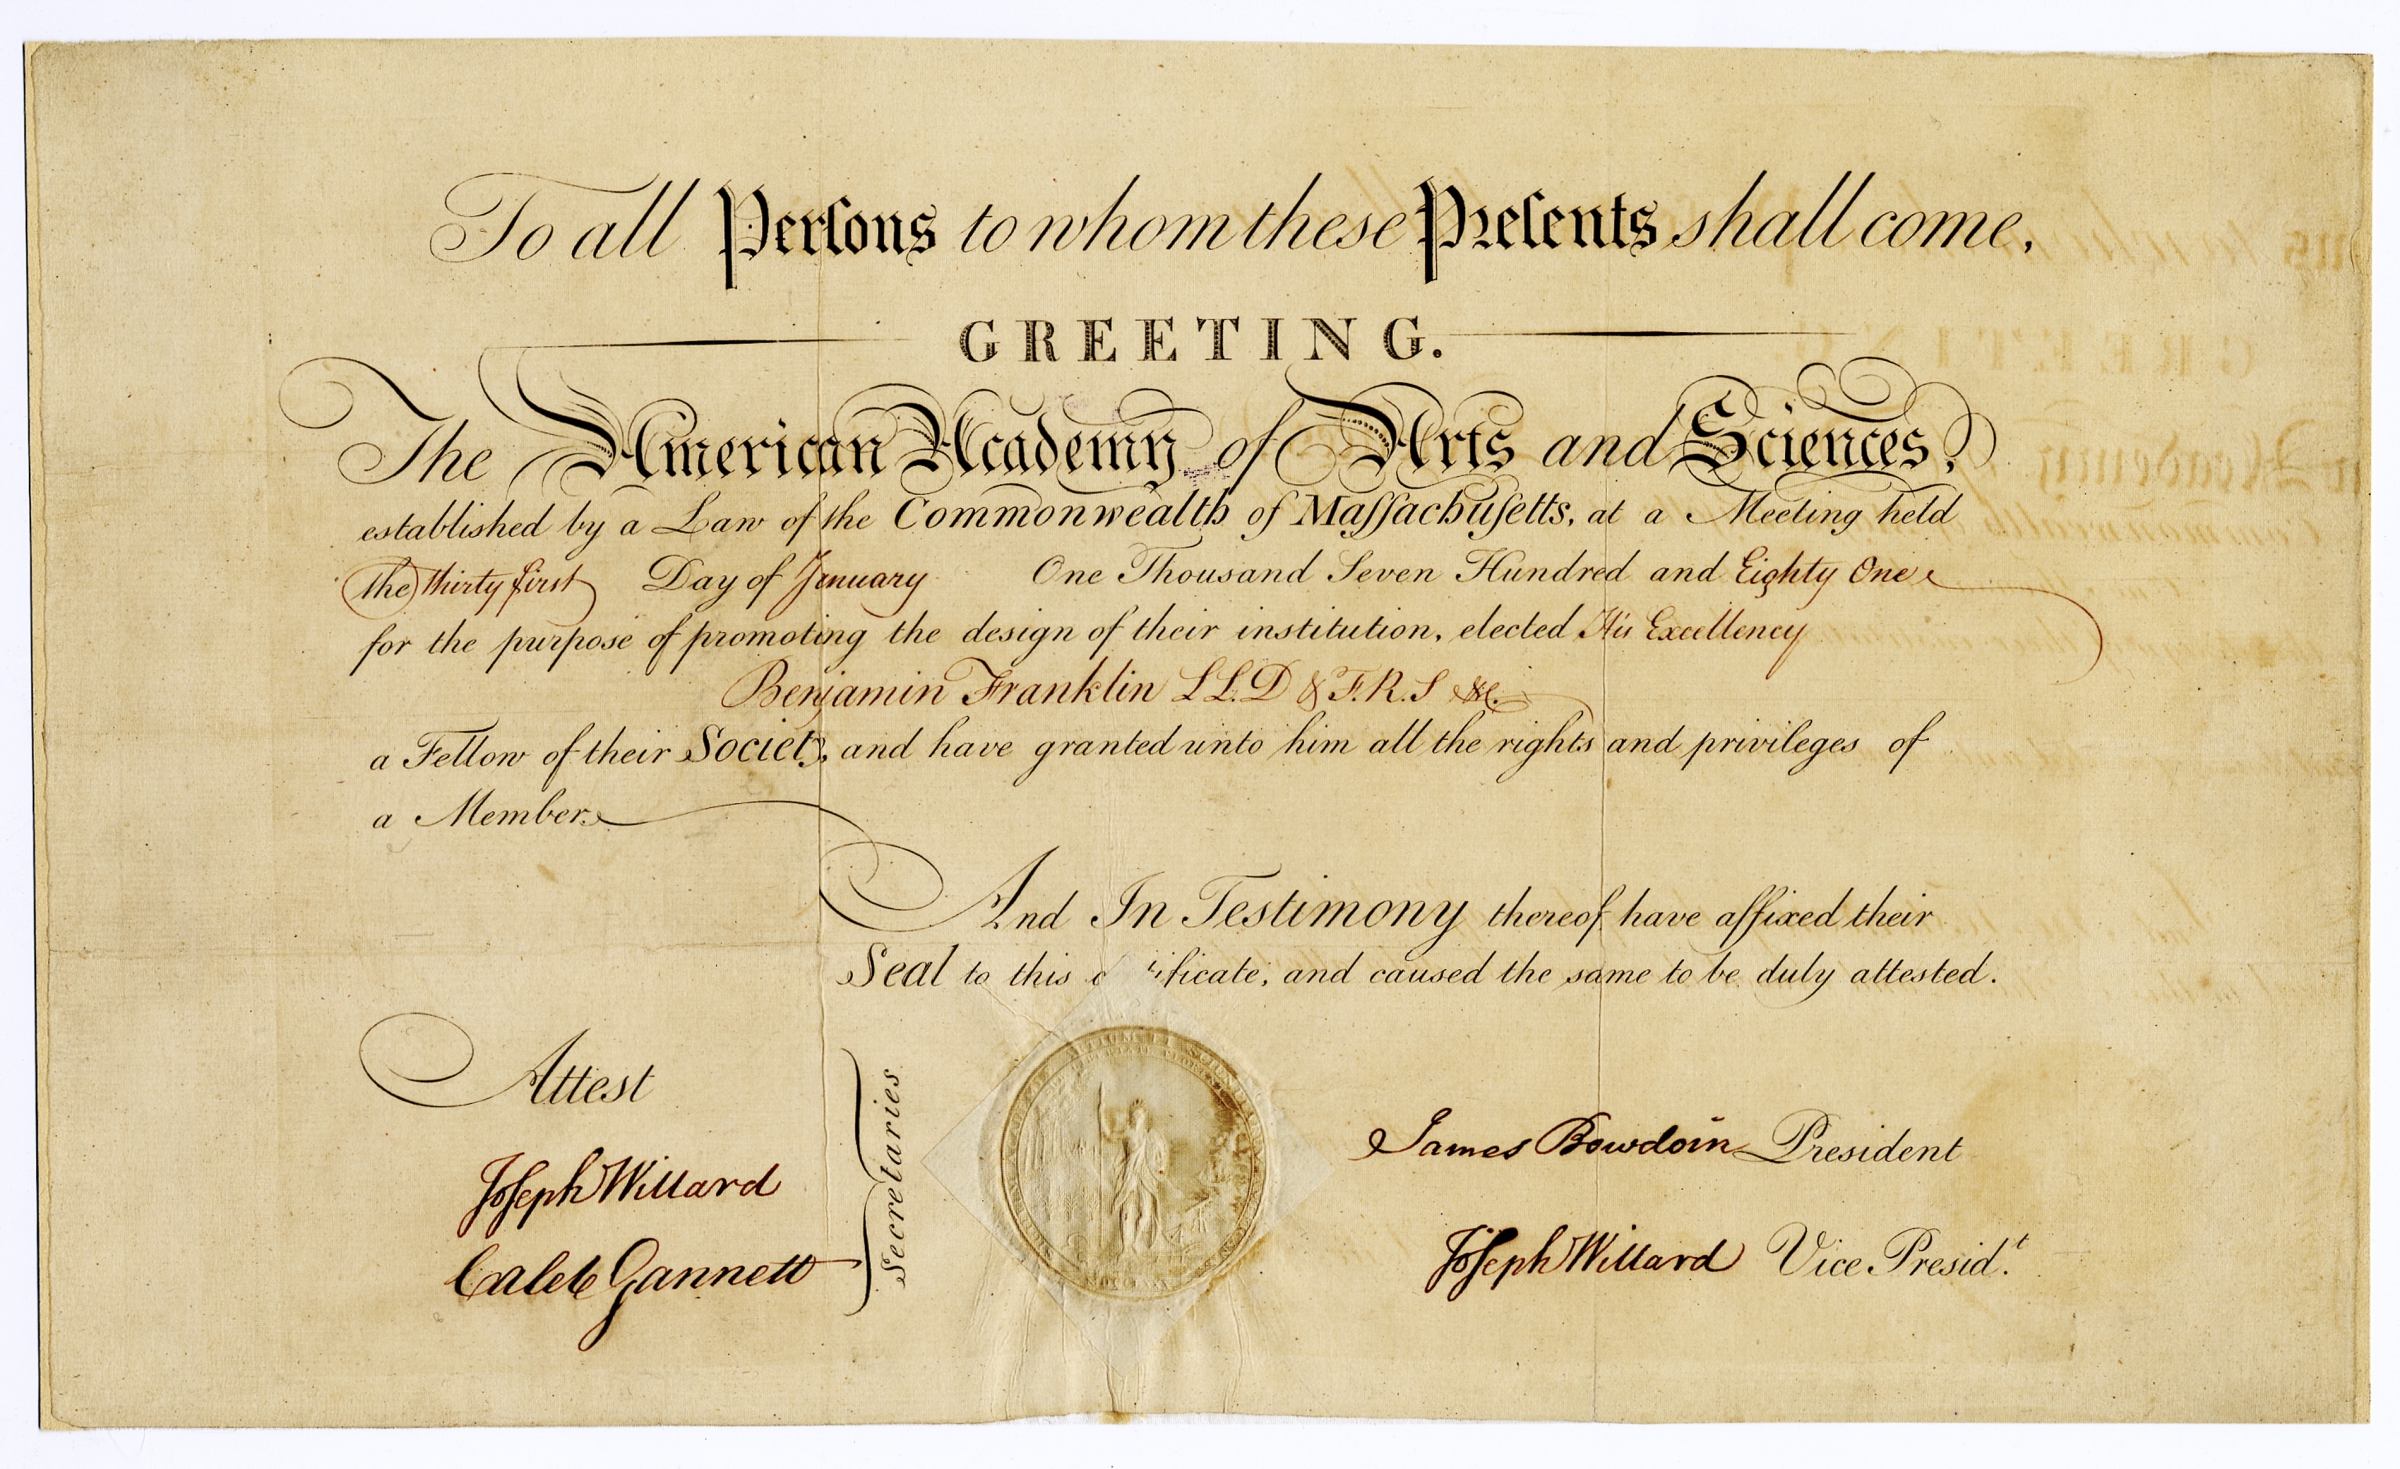 To all Perſons to whom these Preſents shall come,
GREETING.
The American Academy of Arts and Sciences,
established by a Law of the Commonwealth of Maſſachuſetts, at a Meeting held
the thirty first Day of January One Thousand Seven Hundred and Eighty One
for the purpose of promoting the design of their institution, elected His Excellency
Benjamin Franklin LL.D & F.R.S &c.
a Fellow of their Society, and have granted unto him all the rights and privileges of
a Member.
And In Testimony thereof have affixed their
Seal to this c ificate, and caused the same to be duly attested.
Attest
Joſeph Willard
Caleb Gannett
Secretaries
James Bowdoin President
Joſeph Willard Vice Presid.t